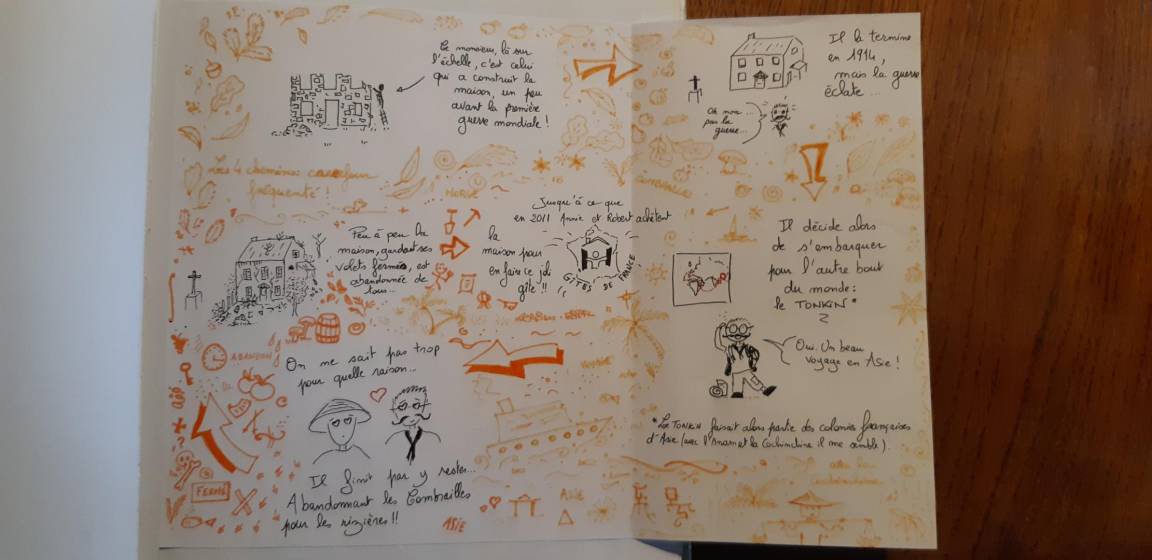 Ce monsieur, là sur
l'échelle, c'est celui
qui a construit la
maison, un peu
avant la première
guerre mondiale !
Il la termine
en 1914,
mais la guerre
éclate ...
Oh non ...
pas la
guerre...
Il décide alors
de s'embarquer
pour l'autre bout
du monde :
le TONKIN *
Oui. Un beau
voyage en Asie !
* Le TONKIN faisait alors partie des colonies françaises
d'Asie (avec l'Annam et la Cochinchine il me semble).
On ne sait pas trop
pour quelle raison...
Il finit par y rester...
Abandonnant les Combrailles
pour les rizières !!
ASIE
ASIE
Peu à peu la
maison, gardant ses
volets fermés, est
abandonnée de
tous...
ABANDON
FERMÉ
Les 4 chemins: carrefour
fréquenté !
Jusqu'à ce que
en 2011 Annie et Robert achètent
la
maison pour
en faire ce joli
gîte !!
GÎTES DE FRANCE